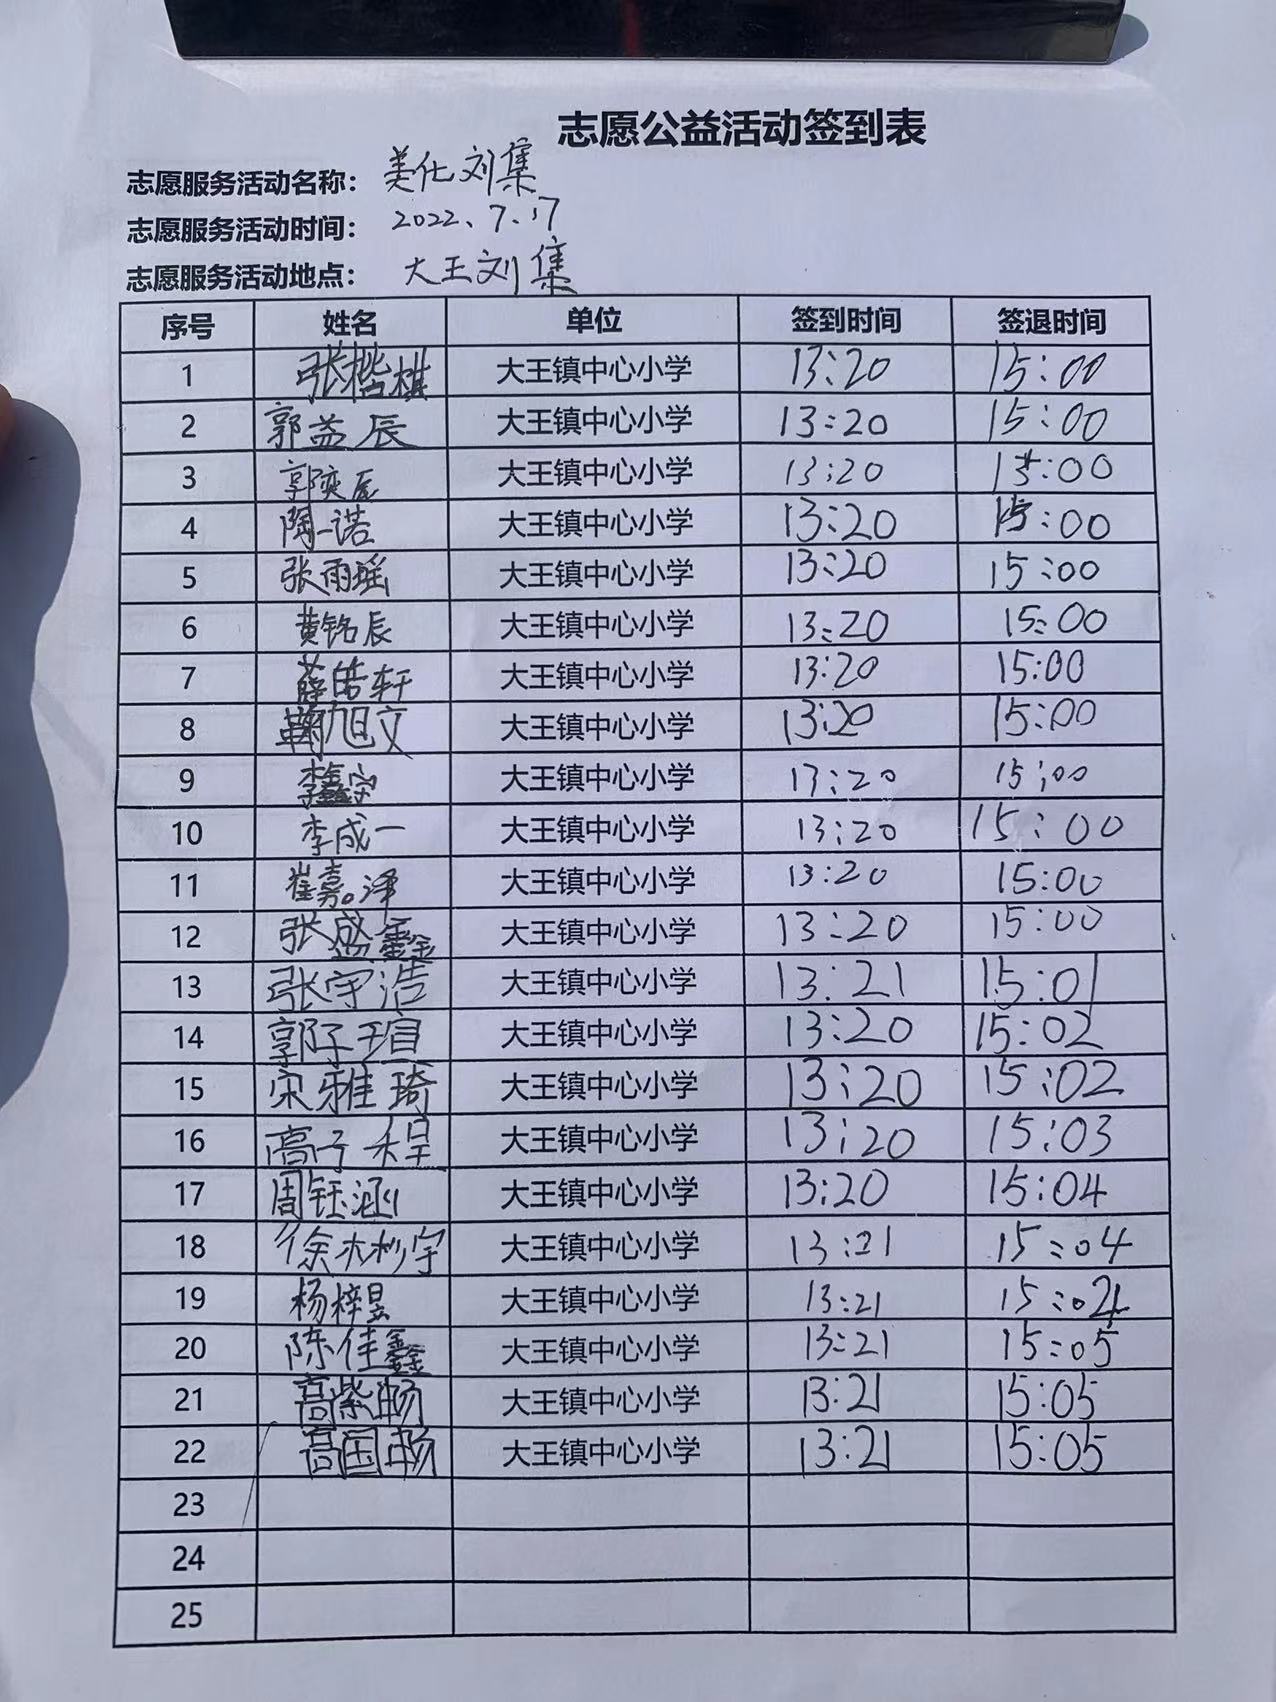 志愿公益活动签到表
志愿服务活动名称： 美化刘集
志愿服务活动时间： 2022、7、17
志愿服务活动地点： 大王刘集
序号 姓名 单位 签到时间 签退时间
1 张楷棋 大王镇中心小学 13:20 15:00
2 郭益辰 大王镇中心小学 13:20 15:00
3 郭奕辰 大王镇中心小学 13:20 15:00
4 陶一诺 大王镇中心小学 13:20 15:00
5 张雨瑶 大王镇中心小学 13:20 15:00
6 黄铭辰 大王镇中心小学 13:20 15:00
7 薛皓轩 大王镇中心小学 13:20 15:00
8 鞠旭文 大王镇中心小学 13:20 15:00
9 李鑫宇 大王镇中心小学 13:20 15:00
10 李成一 大王镇中心小学 13:20 15:00
11 崔嘉泽 大王镇中心小学 13:20 15:00
12 张盛鑫 大王镇中心小学 13:20 15:00
13 张宇浩 大王镇中心小学 13:21 15:01
14 郭子瑄 大王镇中心小学 13:20 15:02
15 宋雅琦 大王镇中心小学 13:20 15:02
16 高子程 大王镇中心小学 13:20 15:03
17 周钰涵 大王镇中心小学 13:20 15:04
18 徐梣宇 大王镇中心小学 13:21 15:04
19 杨梓昱 大王镇中心小学 13:21 15:04
20 陈佳鑫 大王镇中心小学 13:21 15:05
21 高紫畅 大王镇中心小学 13:21 15:05
22 高国畅 大王镇中心小学 13:21 15:05
23
24
25